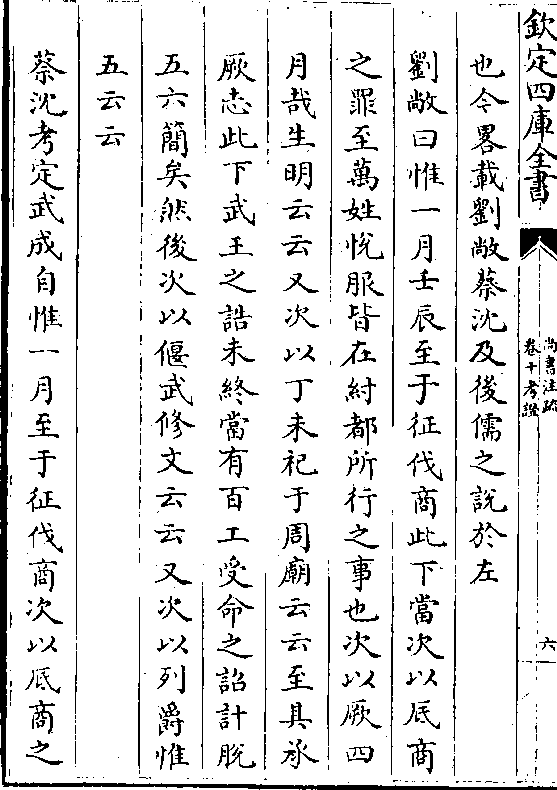 欽定四庫全書
尚書注疏
卷十考證
六
也今畧載劉敞蔡沈及後儒之說於左
劉敞曰惟一月壬辰至于征伐商此下當次以厎商
之罪至萬姓悅服皆在紂都所行之事也次以厥四
月哉生明云云又次以丁未祀于周廟云云至其承
厥志此下武王之誥未終當有百工受命之詔計脫
五六簡矣然後次以偃武修文云云又次以列爵惟
五云云
蔡沈考定武成自惟一月至于征伐商次以厎商之